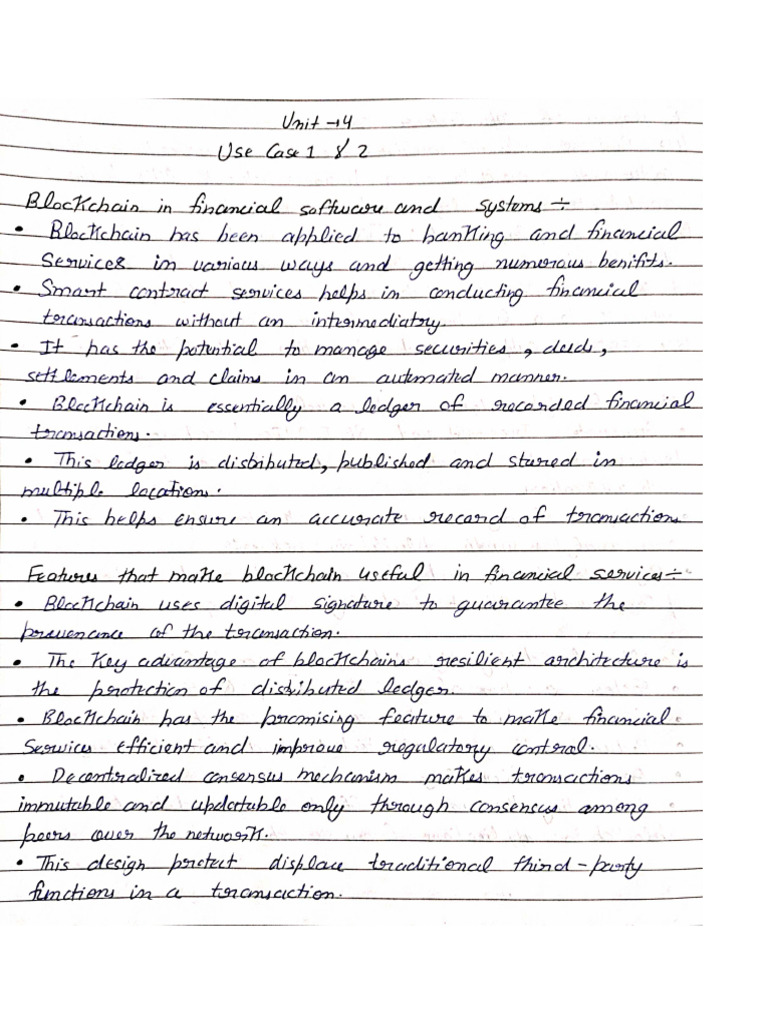 Unit → 4
Use Case 1 & 2
Blockchain in financial software and systems ÷
• Blockchain has been applied to banking and financial
Services in various ways and getting numorous benifits.
• Smart contract services helps in conducting financial
transactions without an intermediatry.
• It has the potential to manage securities, deeds,
settlements and claims in an automated manner.
• Blockchain is essentially a ledger of recorded financial
transactions.
• This ledger is distributed, published and stored in
multiple locations.
• This helps ensure an accurate record of transactions
Features that make blockchain useful in financial services ÷
• Blockchain uses digital signature to guarantee the
provenance of the transaction.
• The Key advantage of blockchains resilient architecture is
the protection of distributed ledger.
• Blockchain has the promising feature to make financial
Services efficient and improve regulatory control.
• Decentralized consensus mechanism makes transactions
immutable and updatable only through consensus among
peers over the network.
• This design protect displace traditional third-party
functions in a transaction.